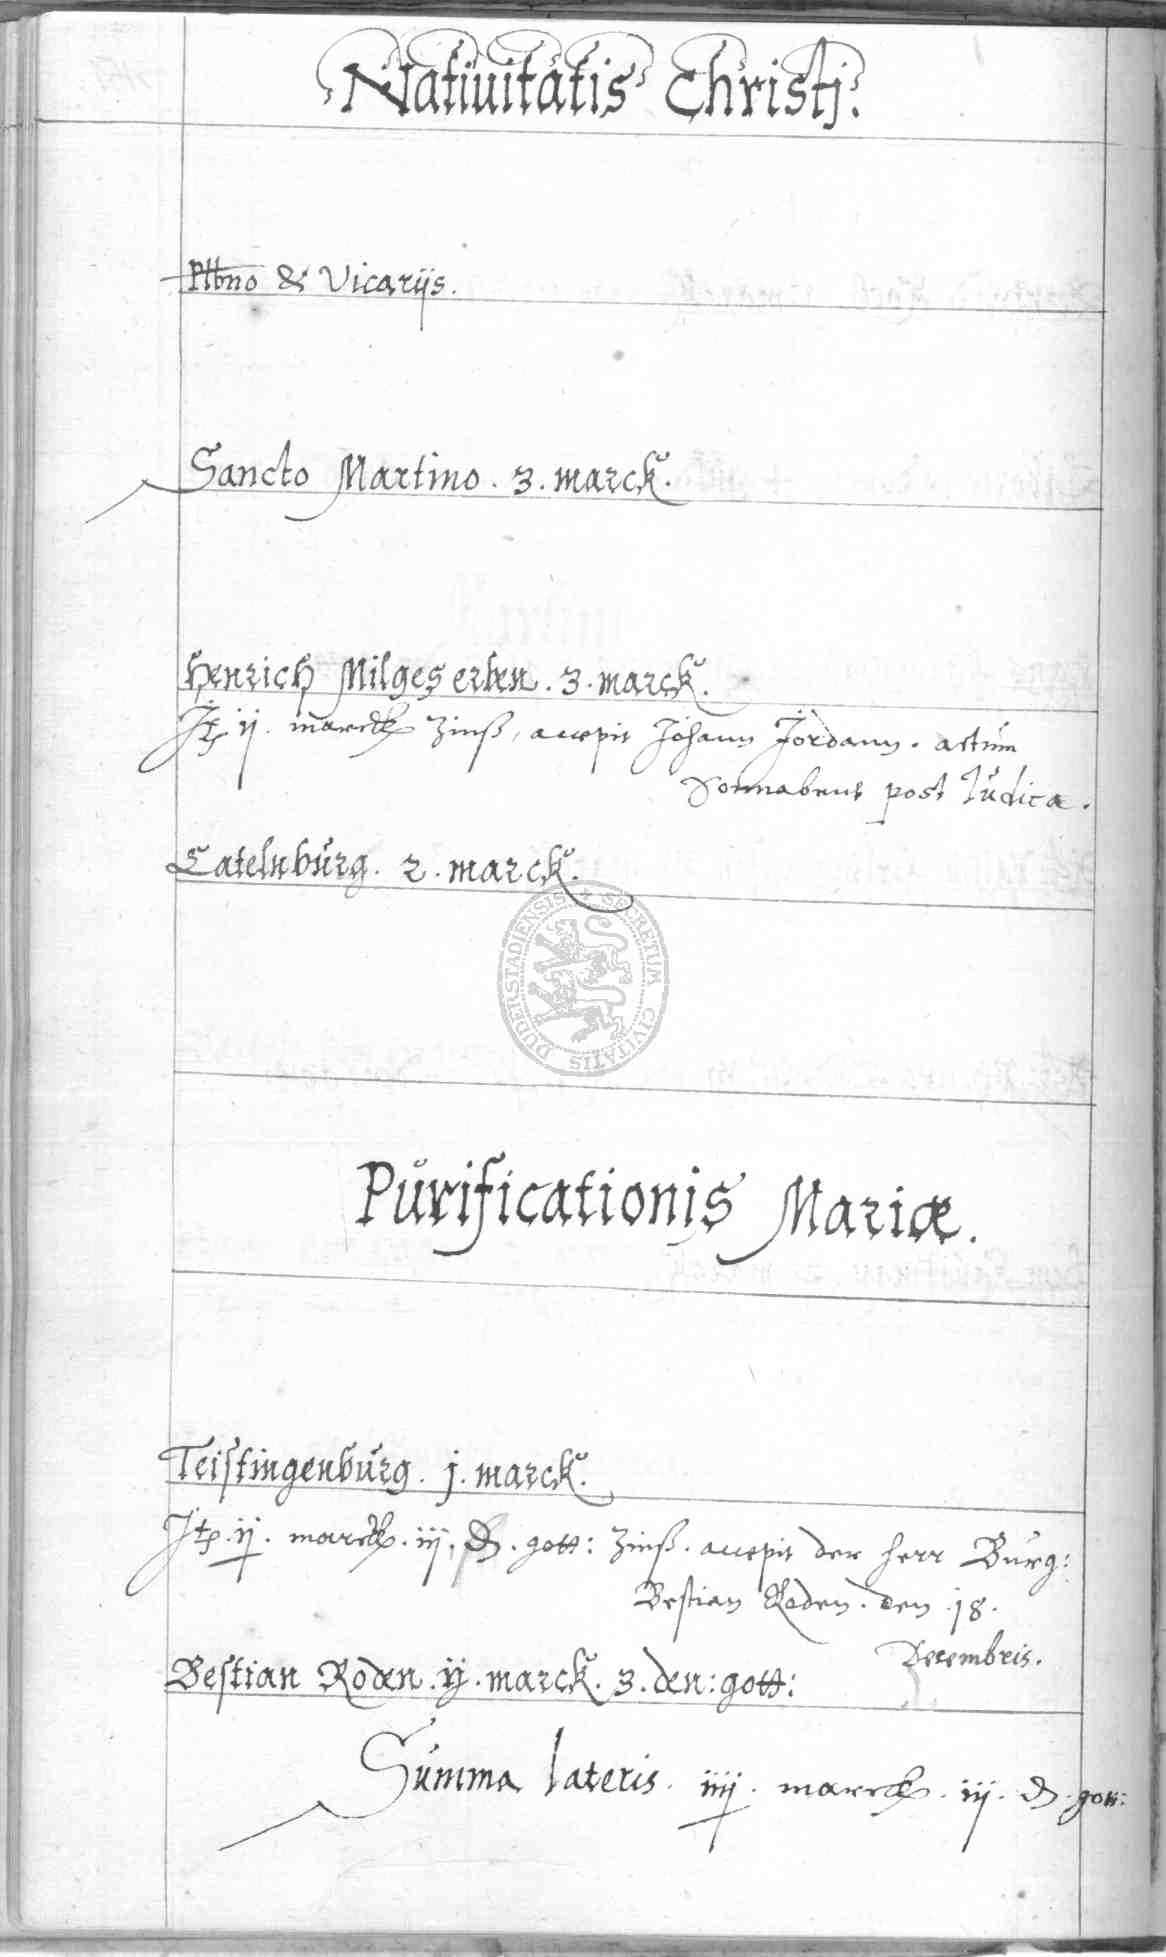 Natiuitatis Christj.
Plbno & Vicarijs.
Sancto Martino. 3. marck.
Henrich Milges erben. 3. marck.
It ij. marck Zinß, accepit Johann Jordann. actum
Sonnabent post Iudica.
Catelnburg. 2. marck.
SECRETUM CIVITATIS DUDERSTADIENSIS
Purificationis Mariæ.
Teistingenburg. j. marck.
It. ij. marck. iij. d. gott: Zinß. accepit der herr Burg:
Bestian Roden. den 18.
Decembris.
Bestian Roden. ij. marck. 3. den: gott:
Summa lateris. iiij. marck. iij. d. gott: